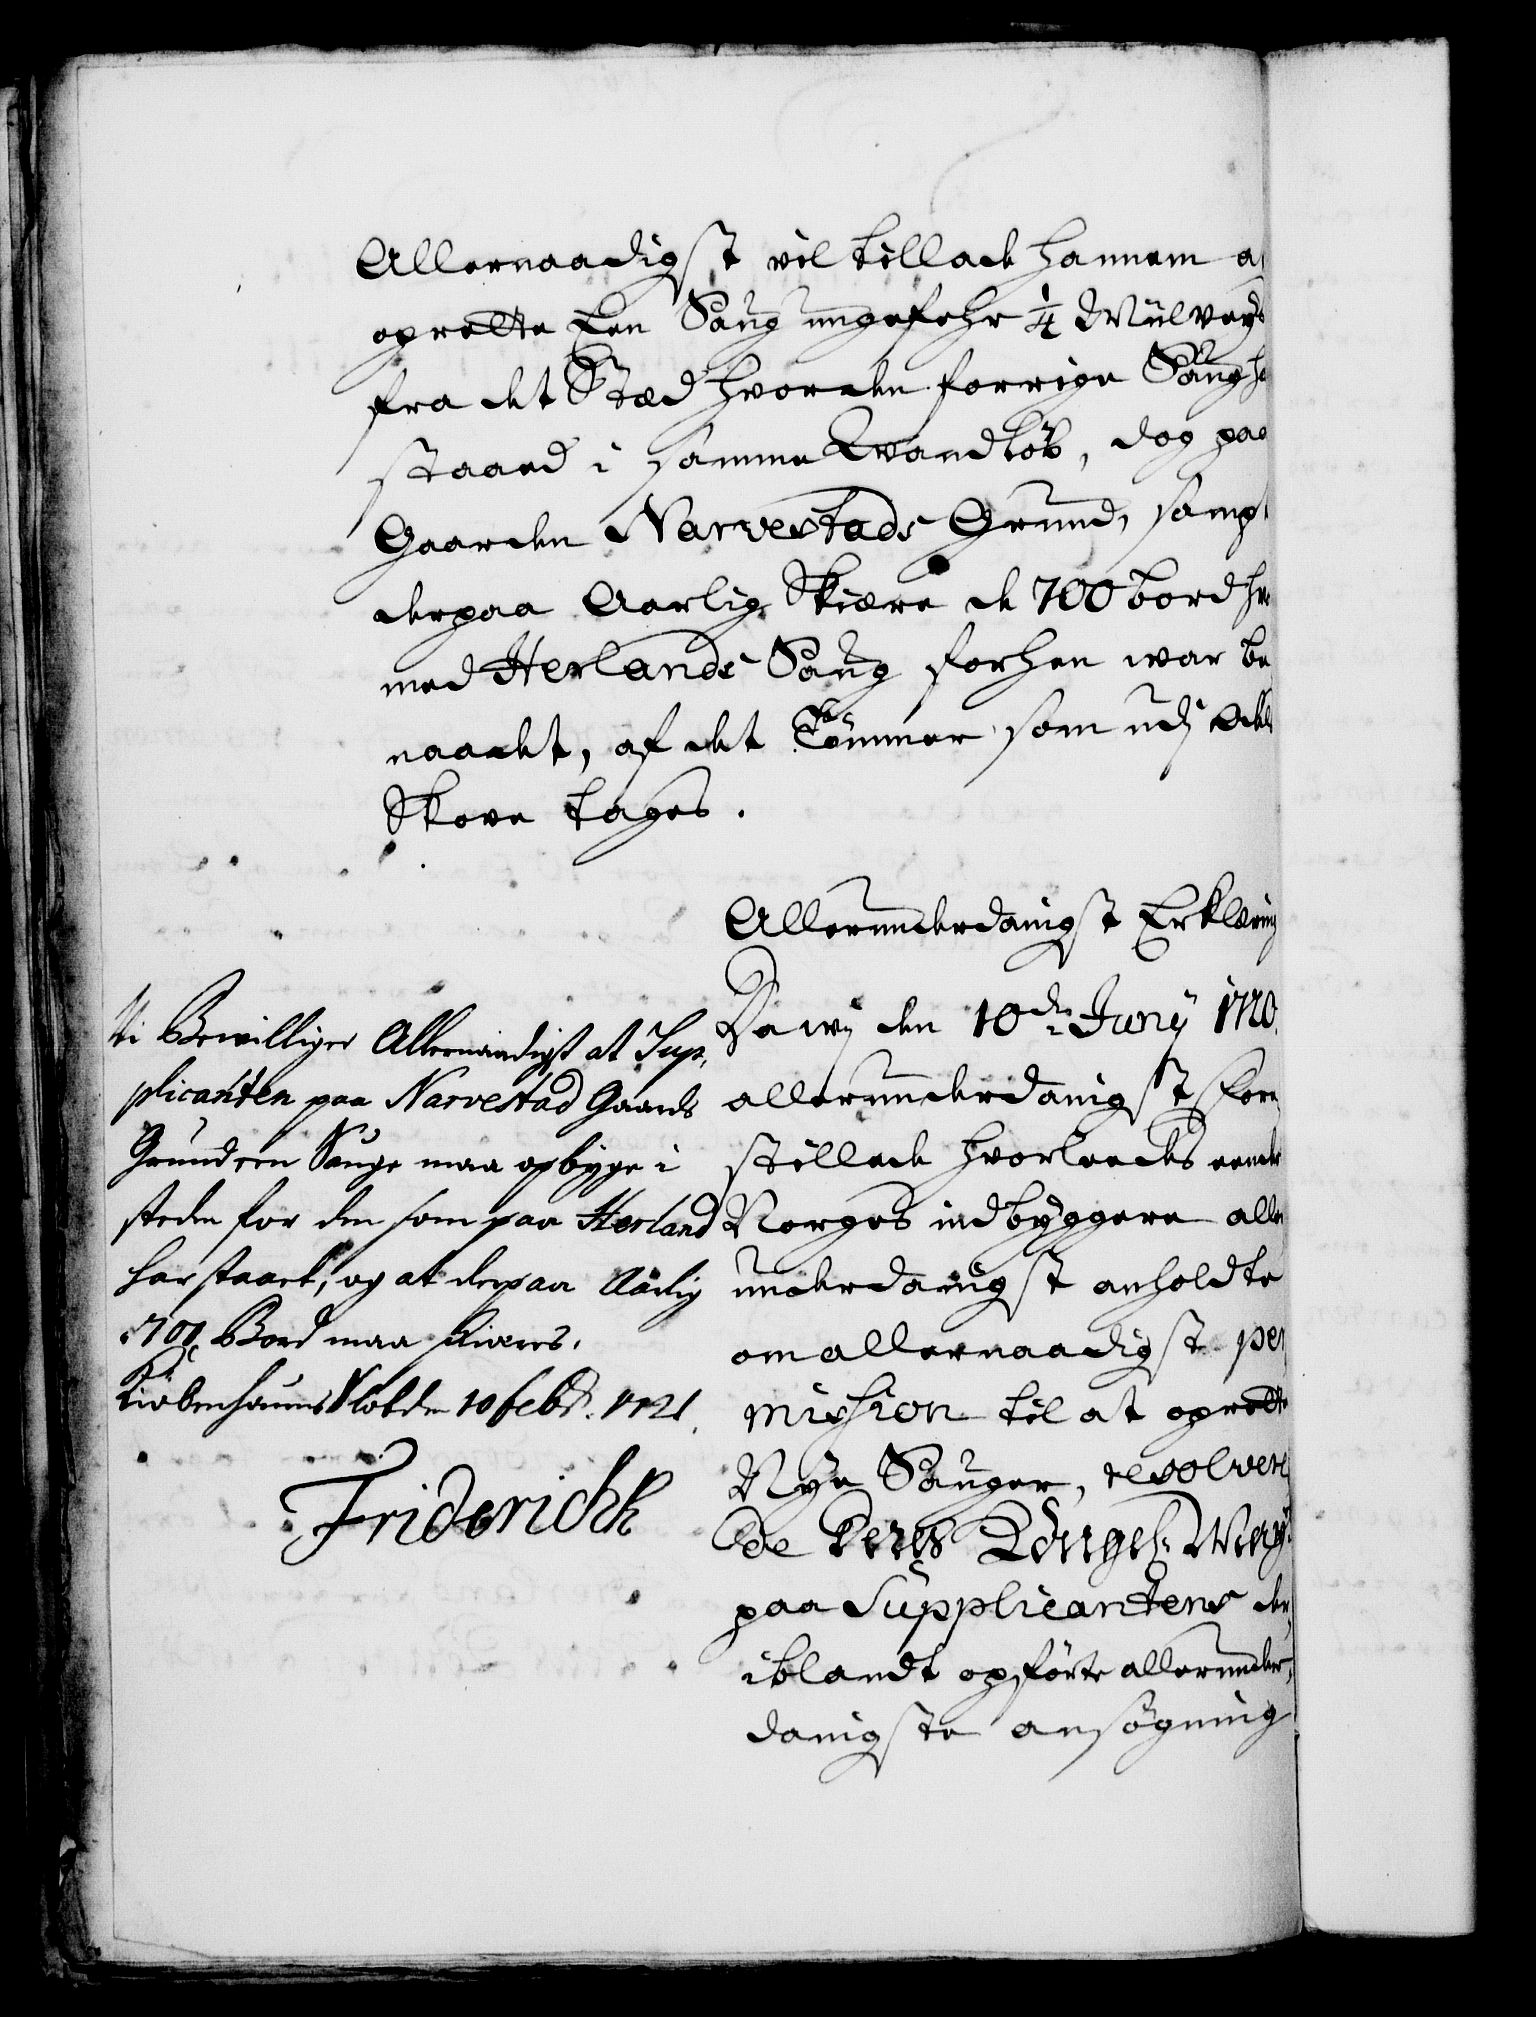 Allernaadigst vil tillade hannem a
oprette Een Saug ungefehr 1/4 Miilveys
fra det Stæd hvor den forrige Saug h
staaed i samme Vandløb, dog paa
Gaarden Narvestads Grund, sampt
derpaa Aarlig Skiære de 700 bord hv
med Herlands Saug forhen war be
naadet, af det Tømmer som udj
Skove tages.
Allerunderdanigst Erklæring
Da wj den 10de Junÿ 1720.
allerunderdanigst fore
stillede hvorleedes eende
Norges indbÿggere aller
underdanigst anholdte
om allernaadigst per
mission til at oprette
Nÿe Sauger, resolvere
de Deres Kongel: Maÿt
paa Supplicantens der
iblandt opførte allerunder,
danigste ansøgning
Vi Bevilliger Allernaadigst at Sup,
plicanten paa Narvestad Gaards
Grund een Sauge maa opbyge i
steden for den som paa Herland
har staaet, og at derpaa Aarlig
700 Bord maa skiæres.
Kiøbenhauns Slot den 10 febr. 1721.
Friderichk